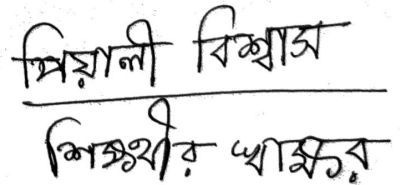 পিয়ালী বিশ্বাস
শিক্ষার্থীর স্বাক্ষর